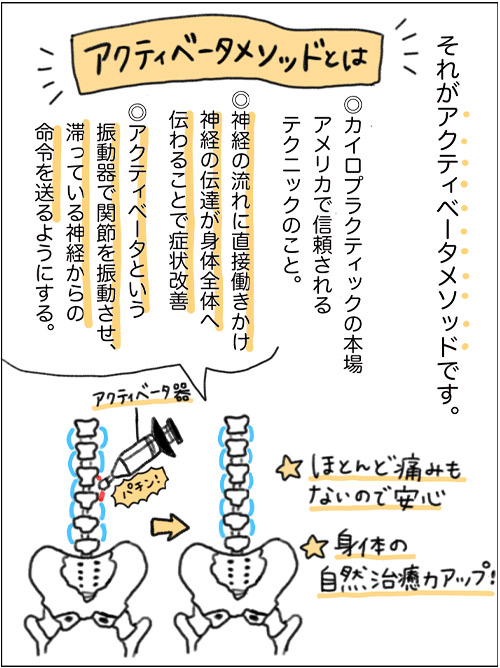 それがアクティベータメソッドです。
アクティベータメソッドとは
◎カイロプラクティックの本場
アメリカで信頼される
テクニックのこと。
◎神経の流れに直接働きかけ
神経の伝達が身体全体へ
伝わることで症状改善
◎アクティベータという
振動器で関節を振動させ、
滞っている神経からの
命令を送るようにする。
アクティベータ器
パチン!
ほとんど痛みも
ないので安心
身体の
自然治癒力アップ!